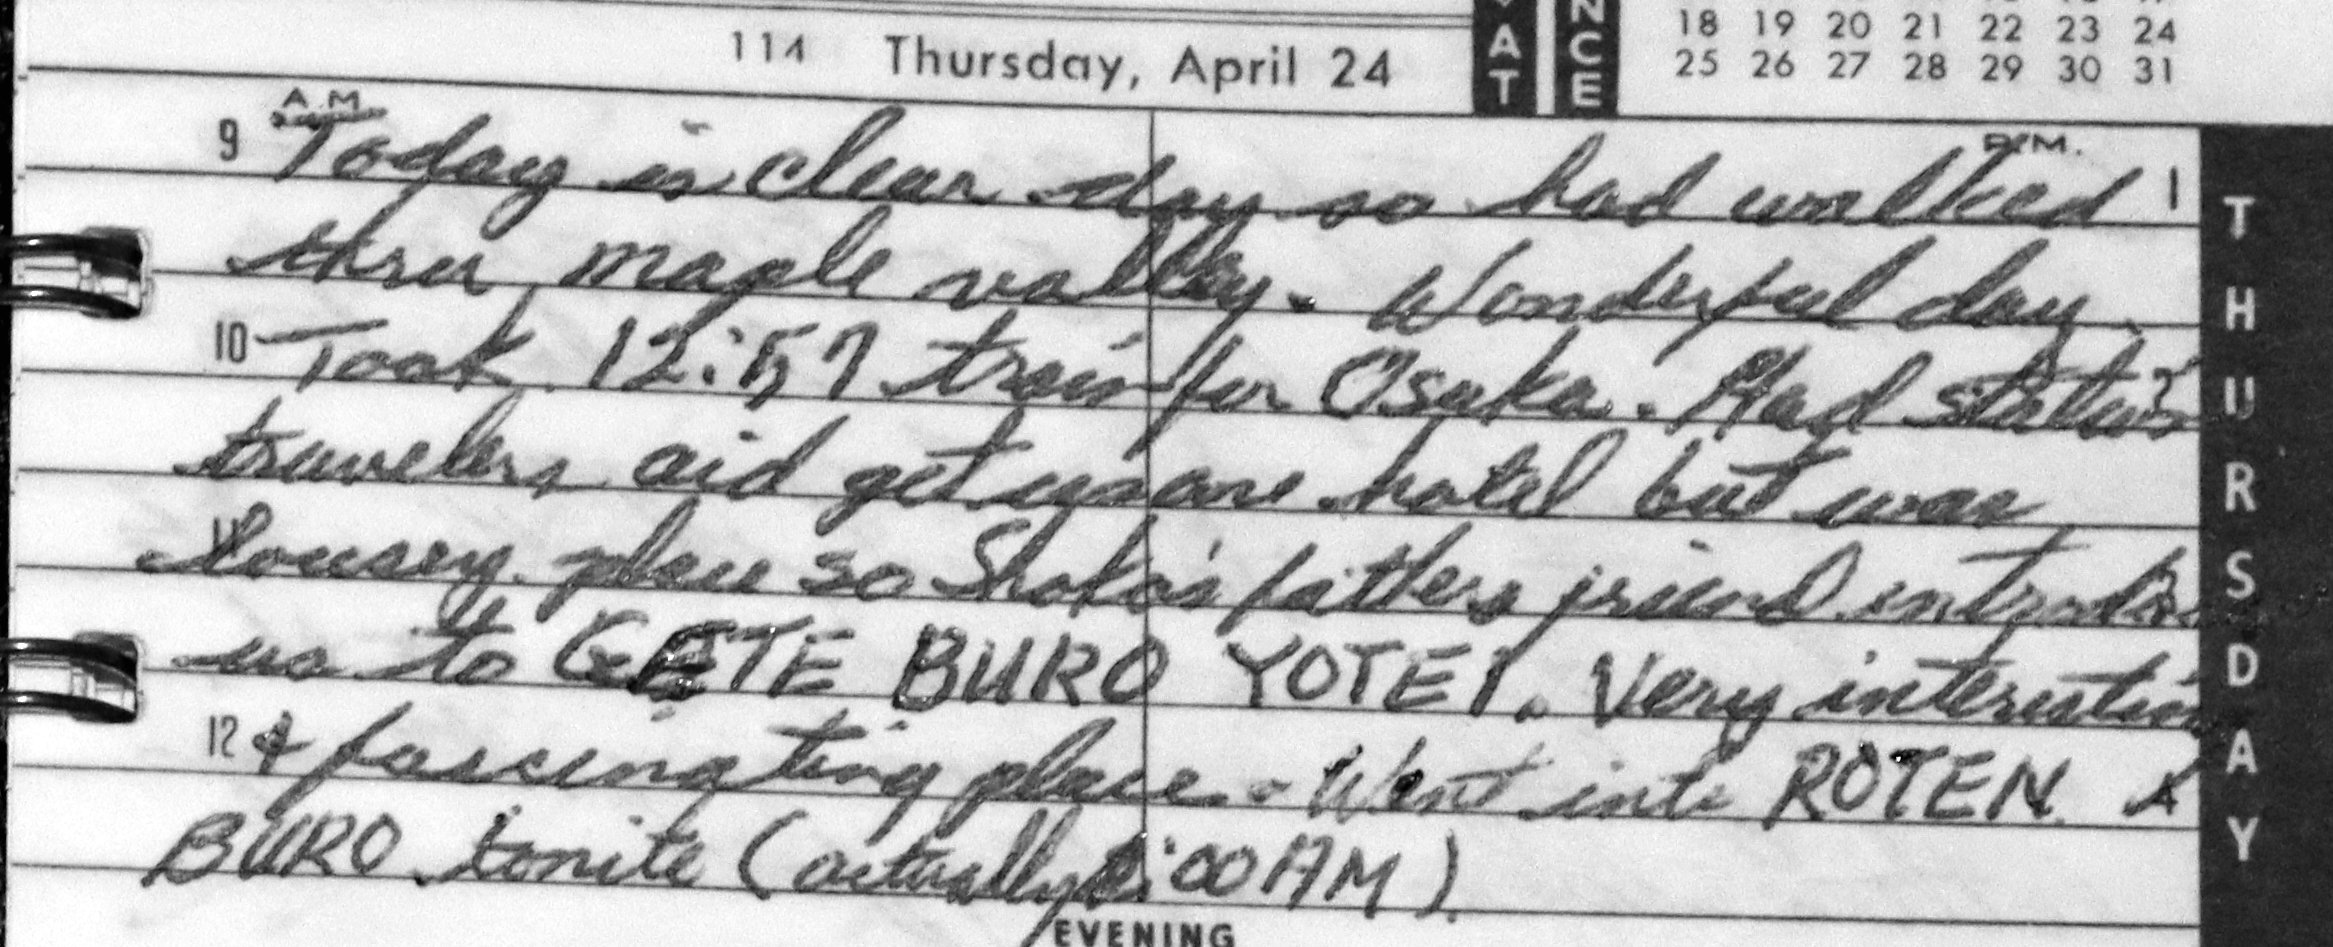 AT
NCE
18 19 20 21 22 23 24
25 26 27 28 29 30 31
114 Thursday, April 24
A.M.
P.M.
9 Today is clear day so had walked 1
thru maple valley. Wonderful day.
10 Took 12:57 train for Osaka. Had
travelers aid get us one hotel but was
11 lousey place so Shoko's fathers friend
us to GETE BURO YOTEI. Very interesting
12 & fascinating place. Went into ROTEN 4
BURO tonite (actually :00 AM).
EVENING
THURSDAY